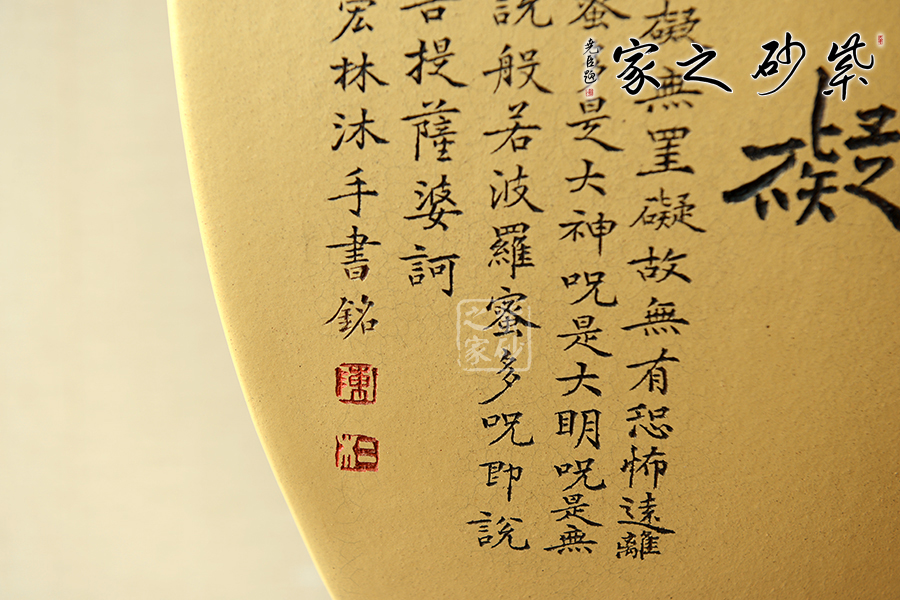 紫砂之家
尧臣題
礙
礙無罣礙故無有恐怖遠離
蜜多是大神呪是大明呪是無
說般若波羅蜜多呪即說
菩提薩婆訶
宏林沐手書銘
紫砂
之家